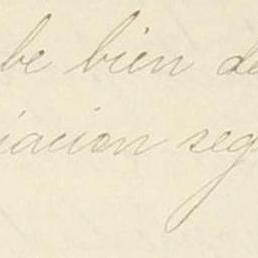 be bien de
iacion seg